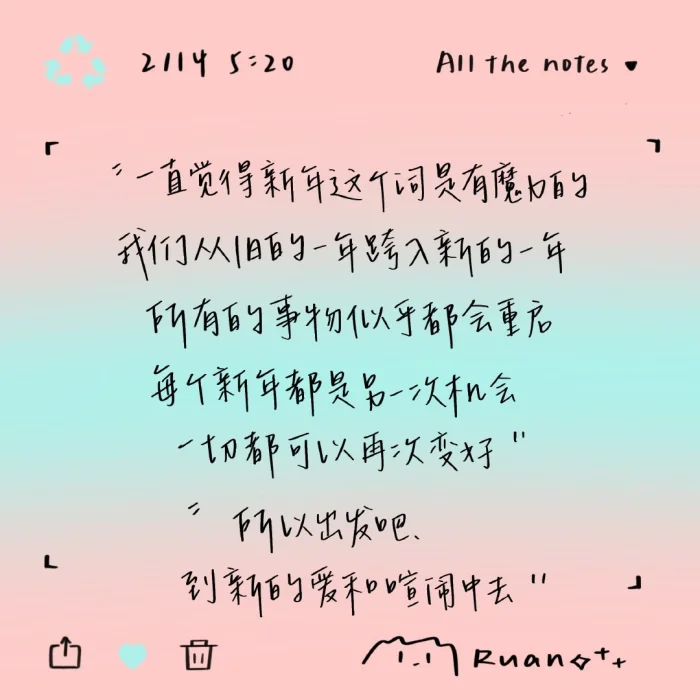 2114 5:20
All the notes ♥
"一直觉得新年这个词是有魔力的
我们从旧的一年跨入新的一年
所有的事物似乎都会重启
每个新年都是另一次机会
一切都可以再次变好"
"所以出发吧、
到新的爱和喧闹中去"
Ruan